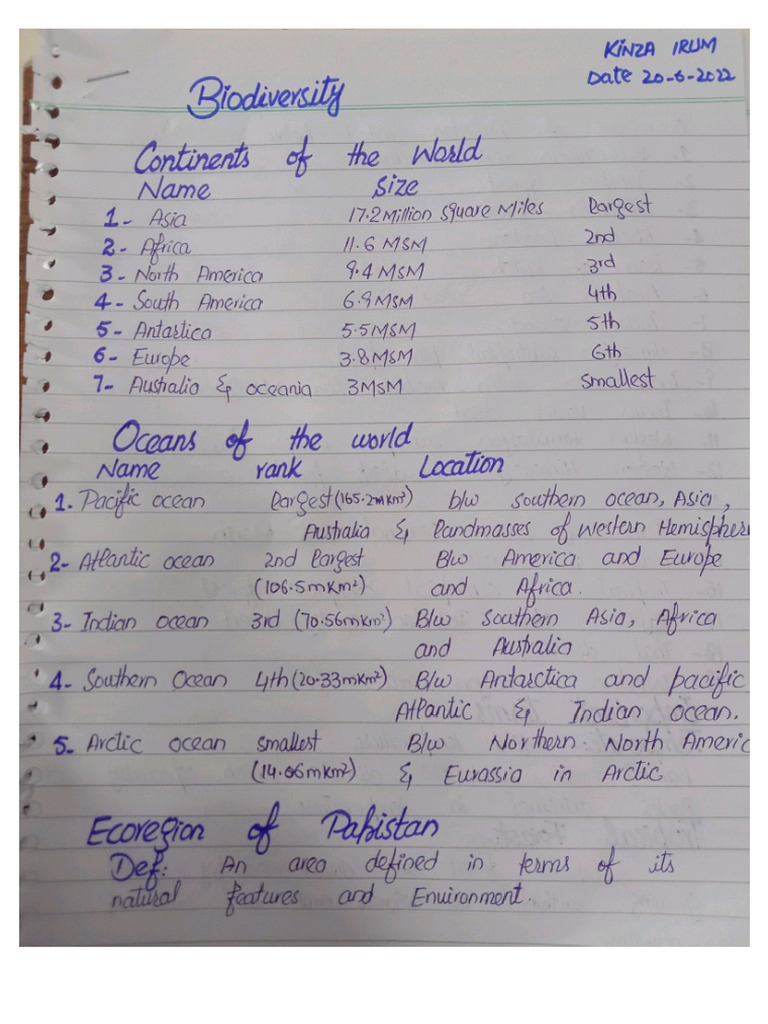 KINZA IRUM
Date 20-6-2022
Biodiversity
Continents of the World
Name Size
1- Asia 17.2 Million Square Miles Largest
2- Africa 11.6 MSM 2nd
3- North America 9.4 MSM 3rd
4- South America 6.9 MSM 4th
5- Antartica 5.5 MSM 5th
6- Europe 3.8 MSM 6th
7- Australia & oceania 3 MSM smallest
Oceans of the world
Name rank Location
1. Pacific ocean Largest (165.2mkm²) b/w southern ocean, Asia,
Australia & Landmasses of Western Hemispher
2- Atlantic ocean 2nd largest B/w America and Europe
(106.5mkm²) and Africa.
3- Indian ocean 3rd (70.56mkm²) B/w Southern Asia, Africa
and Australia
4- Southern Ocean 4th (20.33mkm²) B/w Antarctica and pacific
Atlantic & Indian ocean.
5- Arctic ocean smallest B/w Northern North Americ
(14.06mkm²) & Eurassia in Arctic
Ecoregion of Pakistan
Def: An area defined in terms of its
natural features and Environment.